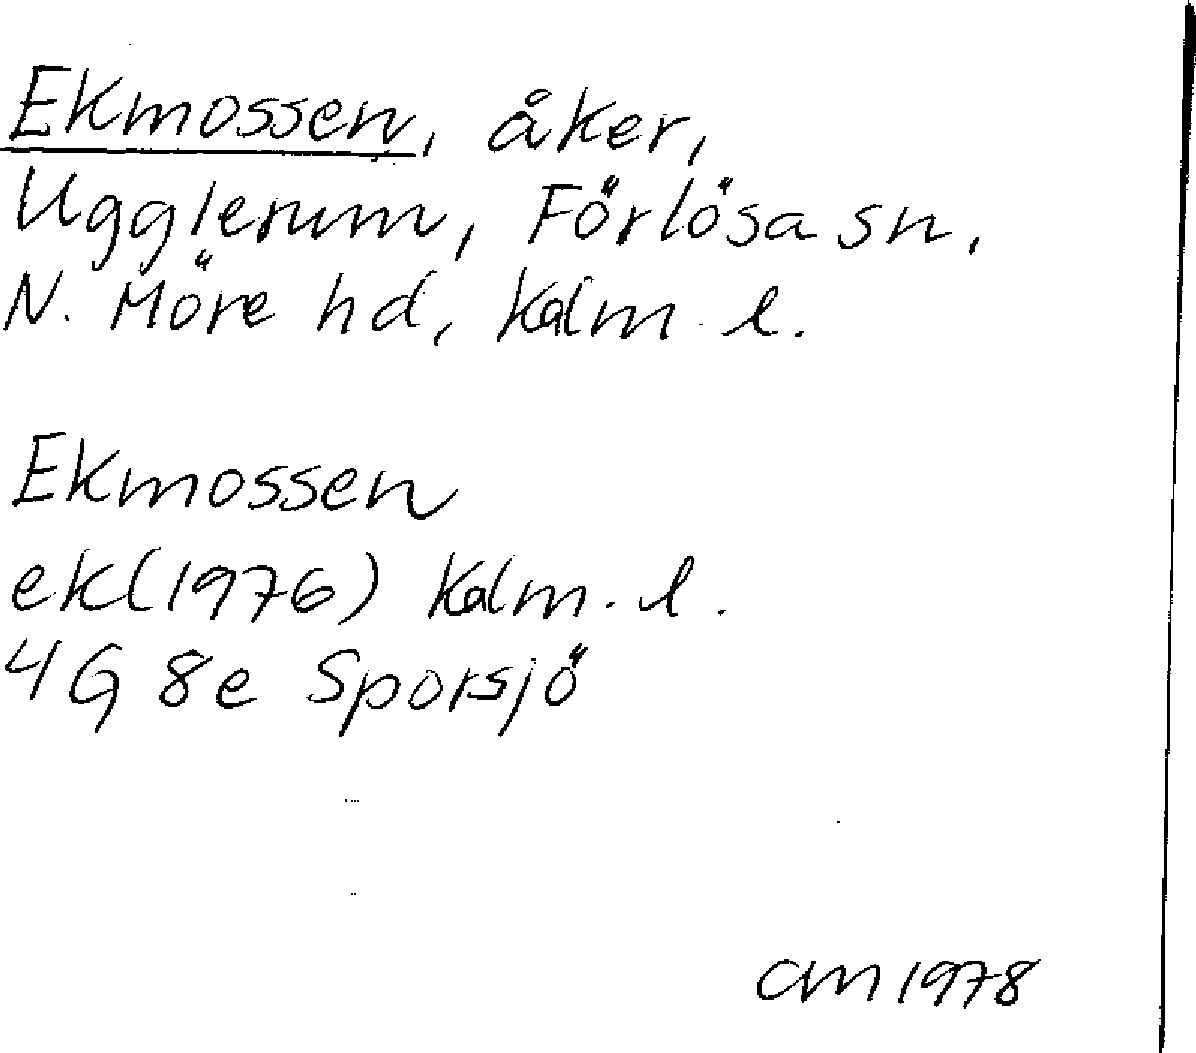 Ekmossen, åker,
Ugglerum, Förlösa sn,
N. Möre hd, Kalm. l.
Ekmossen
ek(1976) Kalm. l.
4G 8e Sporsjö
CM 1978